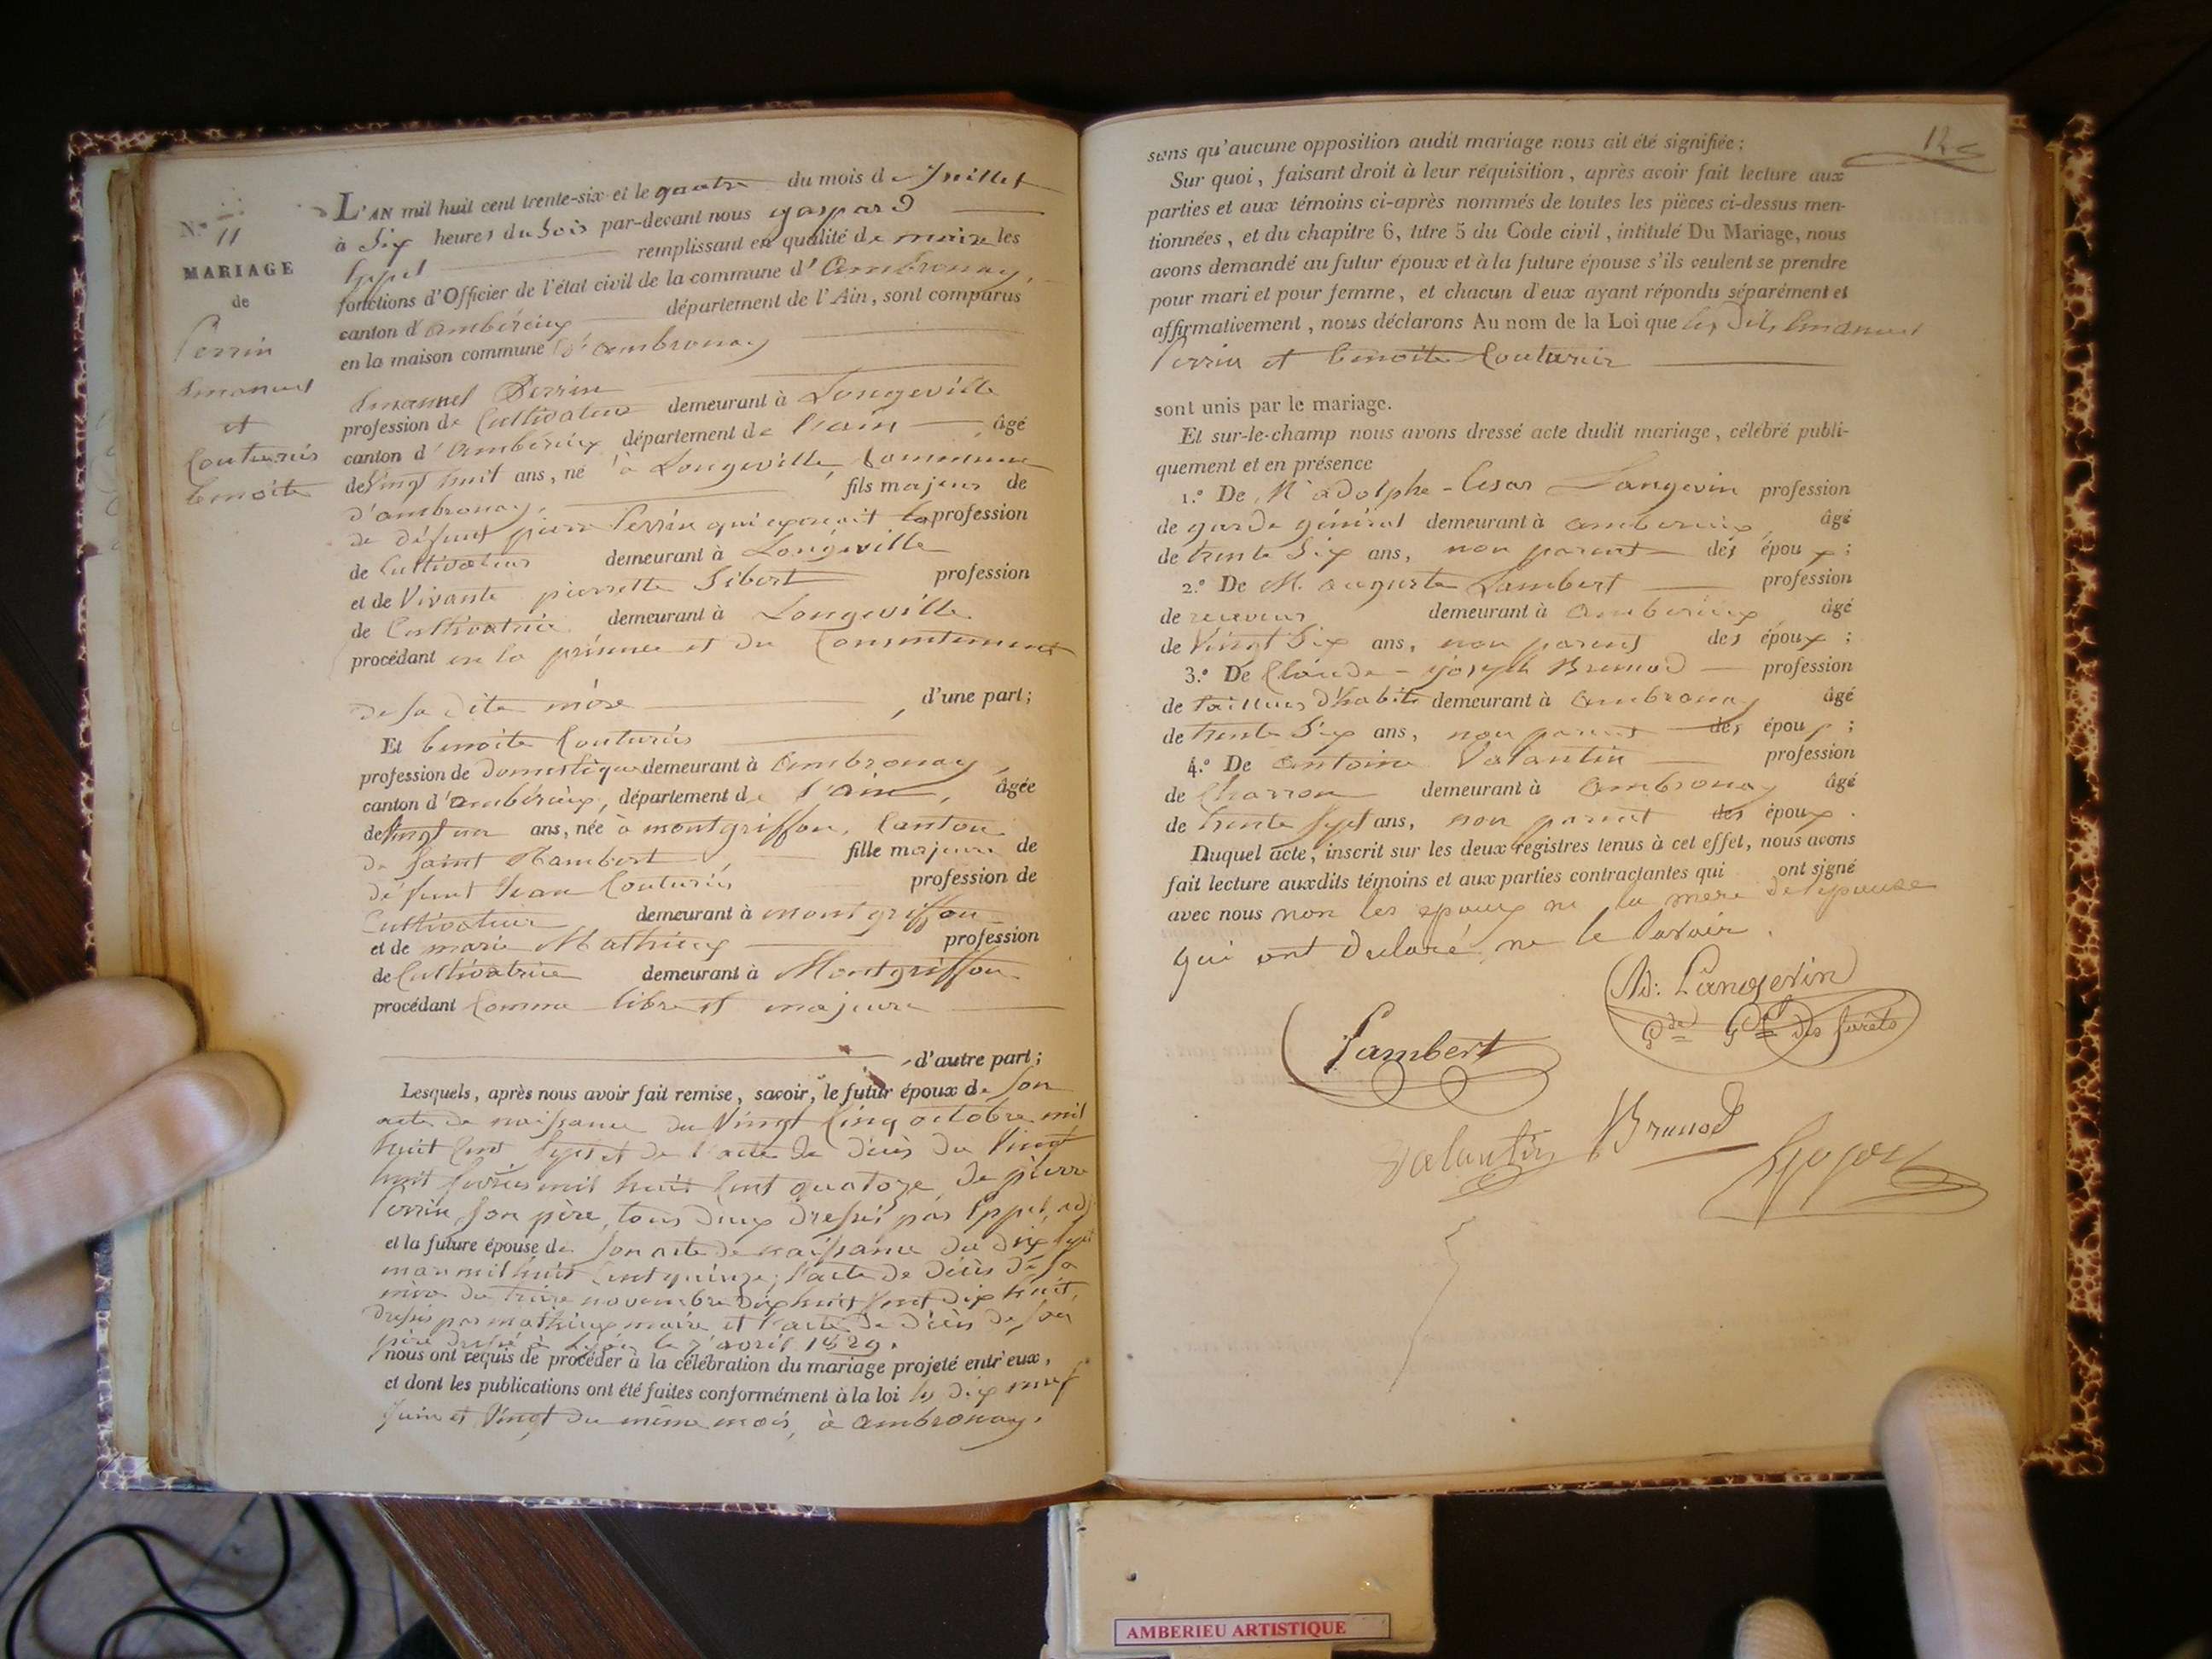 N.° 11
MARIAGE
de
Perrin
Emanuel
et
Couturier
benoite
L'AN mil huit cent trente-six et le quatre du mois de Juillet
à Six heures du Soir par-devant nous gaspard
Eppel remplissant en qualité de maire les
fonctions d'Officier de l'état civil de la commune d'Ambronay,
canton d'ambérieux département de l'Ain, sont comparus
en la maison commune d'ambronay
Emanuel Perrin
profession de Cultivateur demeurant à Longeville
canton d'Ambérieux département de l'ain âgé
de Vingt huit ans, né à Longeville, Commune
d'ambronay, fils majeur de
de défunt pierre Perrin qui exerçait la profession
de Cultivateur demeurant à Longeville
et de Vivante pierrette Sibert profession
de Cultivatrice demeurant à Longeville
procédant en la présence et du Consentement
de sa dite mère d'une part;
Et benoite Couturier
profession de Domestique demeurant à Ambronay,
canton d'ambérieux, département de l'ain, âgée
de Vingt un ans, née à montgriffon, Canton
de Saint Rambert, fille majeure de
défunt Jean Couturier profession de
Cultivateur demeurant à montgriffon
et de marie Mathieux profession
de Cultivatrice demeurant à Montgriffon
procédant Comme libre et majeure
d'autre part;
Lesquels, après nous avoir fait remise, savoir, le futur époux de Son
acte de naissance du Vingt Cinq octobre mil
huit Cent Sept et de l'acte de décès du Vingt
huit fevrier mil huit Cent quatorze de pierre
Perrin son père, tous deux dressés par Eppel, adj
et la future épouse de Son acte de naissance du dix Sept
mars mil huit Cent quinze; l'acte de décès de Sa
mère du treize novembre dix huit Cent dix huit,
dressés par mathieux maire et l'acte de décès de Son
père dressé à le 7 avril 1829.
nous ont requis de procéder à la célébration du mariage projeté entr'eux,
et dont les publications ont été faites conformément à la loi les dix neuf
Juin et Vingt du même mois, à Ambronay.
12
sans qu'aucune opposition audit mariage nous ait été signifiée;
Sur quoi, faisant droit à leur réquisition, après avoir fait lecture aux
parties et aux témoins ci-après nommés de toutes les pièces ci-dessus men-
tionnées, et du chapitre 6, titre 5 du Code civil, intitulé Du Mariage, nous
avons demandé au futur époux et à la future épouse s'ils veulent se prendre
pour mari et pour femme, et chacun d'eux ayant répondu séparément et
affirmativement, nous déclarons Au nom de la Loi que les Dits Emanuel
Perrin et benoite Couturier
sont unis par le mariage.
Et sur-le-champ nous avons dressé acte dudit mariage, célébré publi-
quement et en présence
1.° De M. adolphe-Cesar Langevin profession
de garde général demeurant à amberieux, âgé
de trente Six ans, non parent des époux;
2.° De M. auguste Lambert profession
de receveur demeurant à Amberieux, âgé
de Vingt Six ans, non parent des époux;
3.° De Claude-joseph Brunod profession
de tailleur d'habits demeurant à Ambronay âgé
de trente Six ans, non parent des époux;
4.° De Antoine Valantin profession
de Charron demeurant à Ambronay âgé
de trente Sept ans, non parent des époux.
Duquel acte, inscrit sur les deux registres tenus à cet effet, nous avons
fait lecture auxdits témoins et aux parties contractantes qui ont signé
avec nous non les epoux ni la mere de l'epouse
qui ont declaré ne le Savoir.
Ad: Langevin
Gde Gal des forêts
Lambert
Valantin
Brunod
AMBERIEU ARTISTIQUE